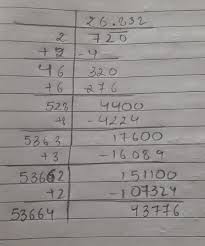 26.832
2 720
+2 -4
46 320
+6 -276
523 4400
+8 -4224
5363 17600
+3 -16089
53662 151100
+2 -107324
53664 43776